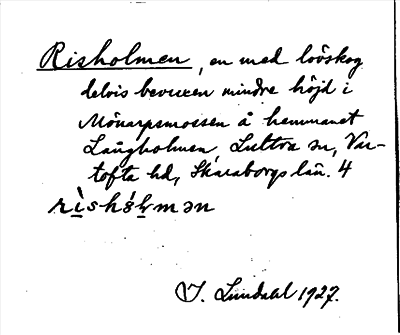 Risholmen, en med lövskog
delvis bevuxen mindre höjd i
Mönarpsmossen å hemmanet
Långholmen Luttra sn, Var-
tofta hd, Skaraborgs län. 4
rìshól̥mən
J. Lundahl 1927.